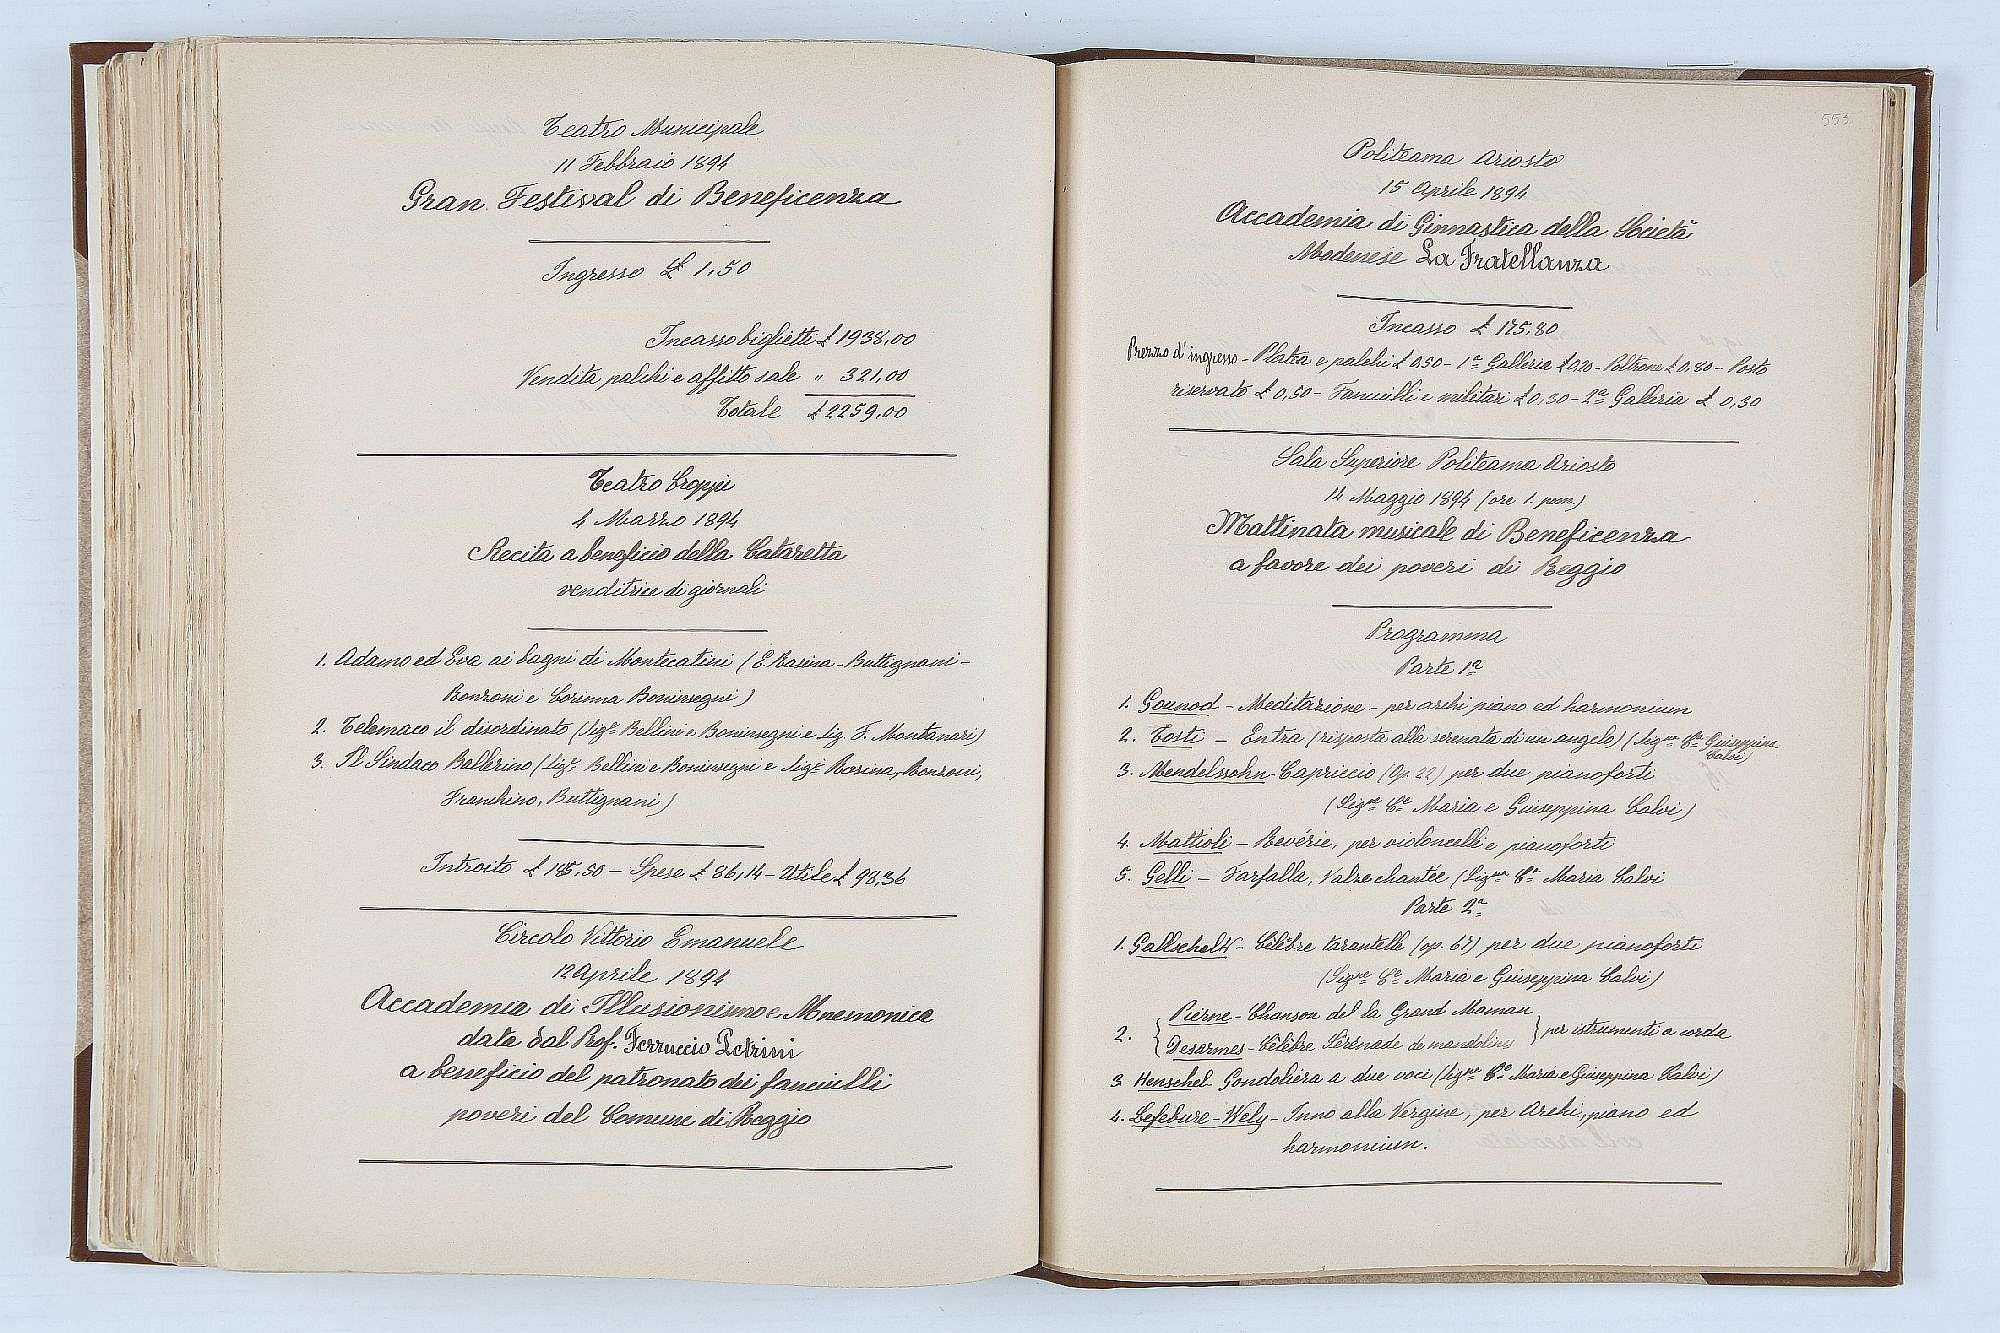 Teatro Municipale
11 Febbraio 1894
Gran Festival di Beneficenza
Ingresso £ 1,50
Incasso biglietti £ 1938,00
Vendita palchi e affitto sale " 321,00
Totale £ 2259,00
Teatro Groppi
4 Marzo 1894
Recita a beneficio della Cataretta
venditrice di giornali
1. Adamo ed Eva ai bagni di Montecatini (E. Rasina - Buttignani -
Bonzoni e Corinna Boninsegni)
2. Telemaco il disordinato (Sigre Bellini e Boninsegni e Sig. F. Montanari)
3. Il Sindaco Ballerino (Sigre Bellini e Boninsegni e Sigi Rasina, Bonzoni,
Franchino, Buttignani)
Introito £ 185,50 - Spese £ 86,14 - Utile £ 98,36
Circolo Vittorio Emanuele
12 Aprile 1894
Accademia di Illusionismo e Mnemonica
data dal Prof. Ferruccio Petrini
a beneficio del patronato dei fanciulli
poveri del Comune di Reggio
553
Politeama Ariosto
15 Aprile 1894
Accademia di Ginnastica della Società
Modenese La Fratellanza
Incasso £ 175,80
Prezzo d'ingresso - Platea e palchi £ 0,50 - 1a Galleria £ 0,20 - Poltrone £ 0,80 - Posto
riservato £ 0,50 - Fanciulli e militari £ 0,30 - 2a Galleria £ 0,30
Sala Superiore Politeama Ariosto
14 Maggio 1894 (ore 1. pom)
Mattinata musicale di Beneficenza
a favore dei poveri di Reggio
Programma
Parte 1a
1. Gounod - Meditazione - per archi piano ed harmonium
2. Tosti - Entra (risposta alla serenata di un angelo) (Signa Ca Giuseppina Calvi)
3. Mendelssohn - Capriccio (Op. 22) per due pianoforti
(Signe Ce Maria e Giuseppina Calvi)
4. Mattioli - Revérie, per violoncelli e pianoforti
5. Gelli - Farfalla, Valze chantée (Signa Ca Maria Calvi
Parte 2a
1. Gallschalk - Célèbre tarantelle (op. 67) per due pianoforti
(Signe Ce Maria e Giuseppina Calvi)
2. Pierne - Chanson del la Grand Maman
Desarmes - Célèbre Serenade de mandolines per istrumenti a corda
3 Henschel - Gondoliera a due voci (Signe Ce Maria e Giuseppina Calvi)
4. Lefebure - Wely - Inno alla Vergine, per Archi, piano ed
harmonium.